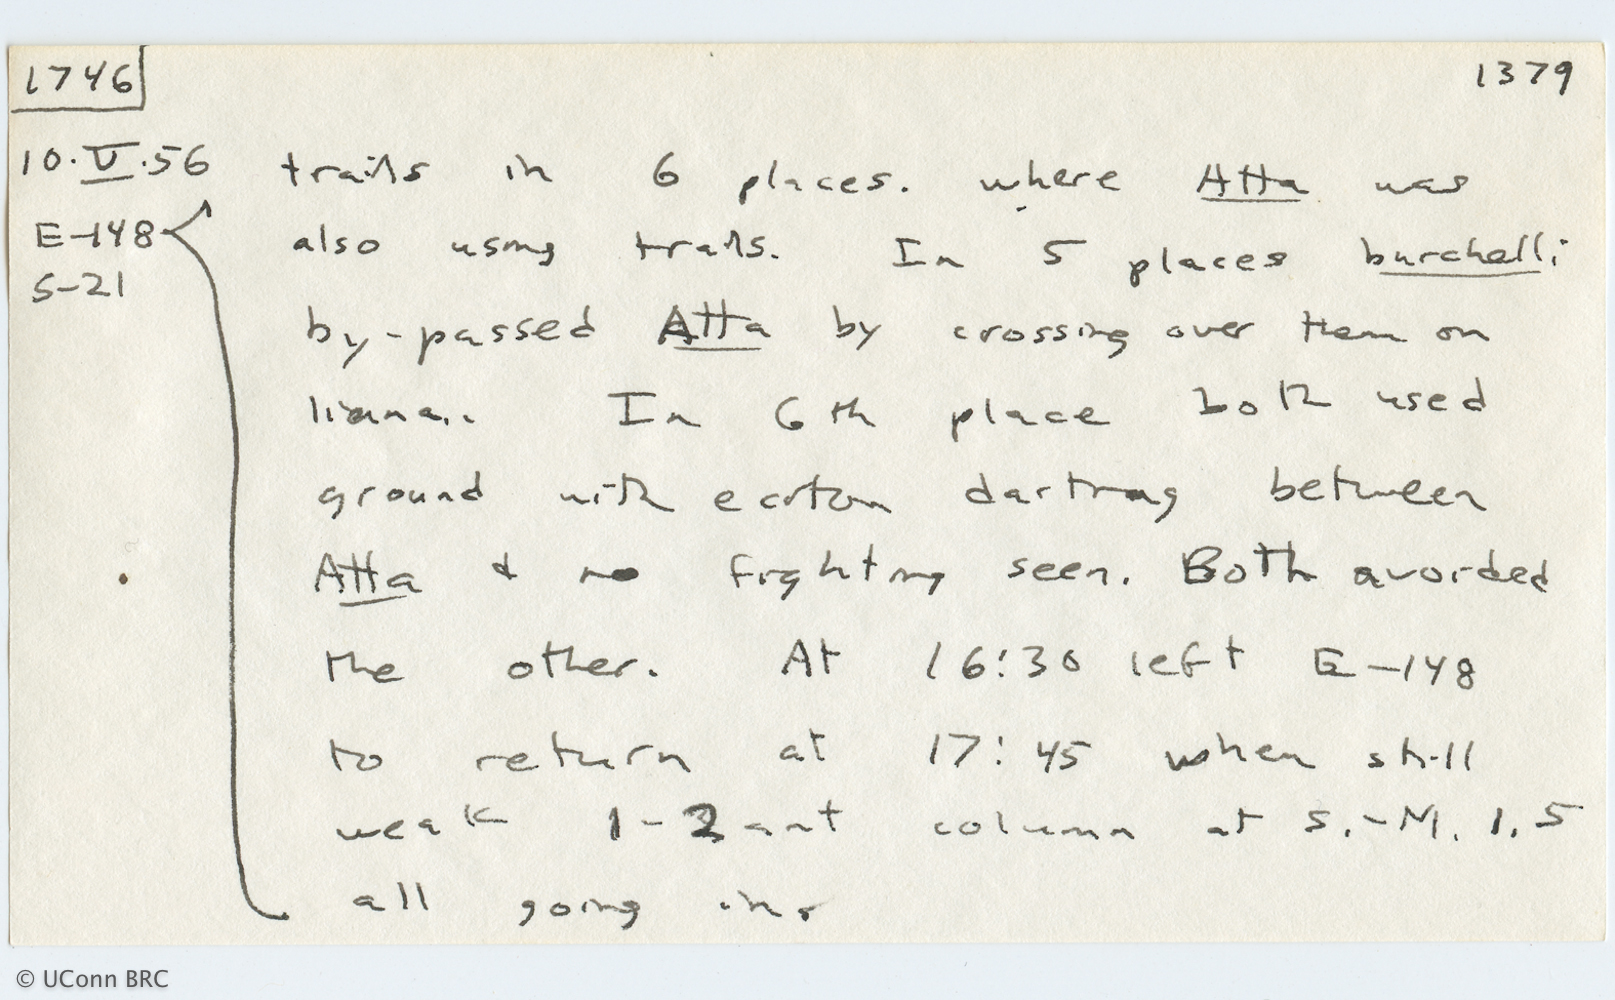 1746
1379
10.V.56 trails in 6 places. where Atta was
E-148 also using trails. In 5 places burchelli
S-21
by-passed Atta by crossing over them on
liana.. In 6th place both used
ground with eciton darting between
Atta & no fighting seen. Both avoided
the other. At 16:30 left E-148
to return at 17:45 when still
weak 1-2 ant column at S.-M. 1.5
all going in.
© UConn BRC